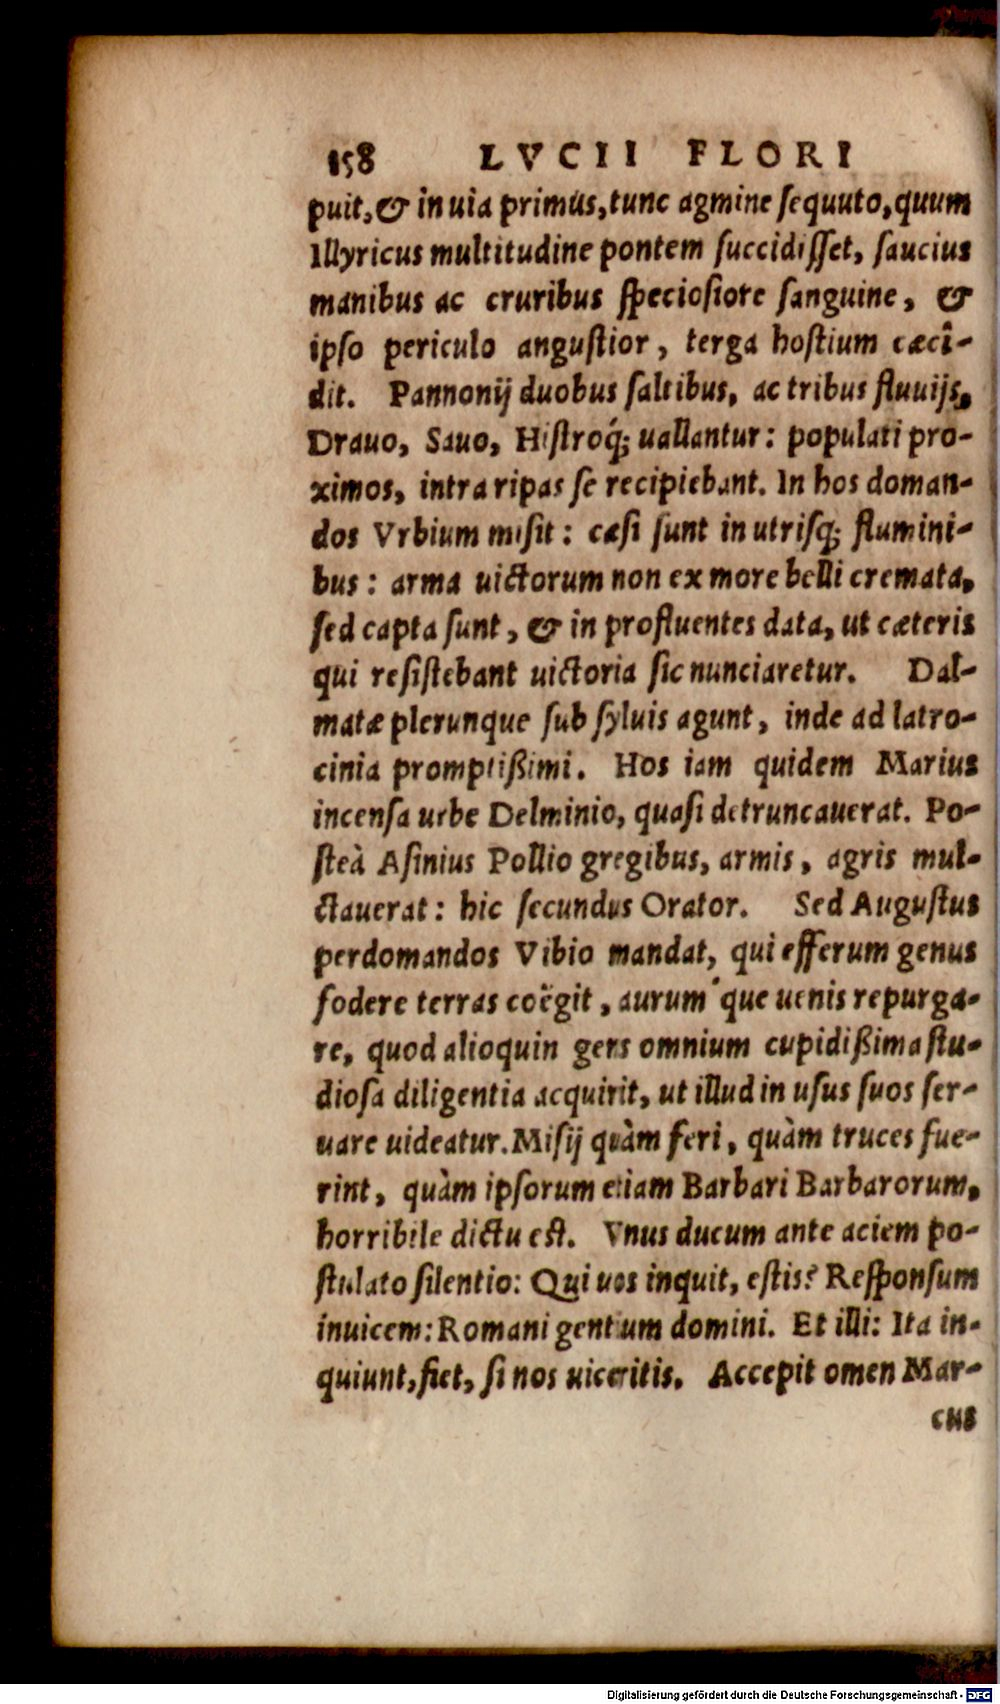 158 LVCII FLORI
puit, & in uia primus, tunc agmine sequuto, quum
Illyricus multitudine pontem succidisset, saucius
manibus ac cruribus speciosiore sanguine, &
ipso periculo angustior, terga hostium cæcî-
dit. Pannonij duobus saltibus, ac tribus fluuijs,
Drauo, Sauo, Histroq́; uallantur: populati pro-
ximos, intra ripas se recipiebant. In hos doman-
dos Vrbium misit: cæsi sunt in utrisq; flumini-
bus: arma uictorum non ex more belli cremata,
sed capta sunt, & in profluentes data, ut cæteris
qui resistebant uictoria sic nunciaretur. Dal-
matæ plerunque sub syluis agunt, inde ad latro-
cinia promptißimi. Hos iam quidem Marius
incensa urbe Delminio, quasi detruncauerat. Po-
steà Asinius Pollio gregibus, armis, agris mul-
ctauerat: hic secundus Orator. Sed Augustus
perdomandos Vibio mandat, qui efferum genus
fodere terras coëgit, aurum que uenis repurga-
re, quod alioquin gens omnium cupidißima stu-
diosa diligentia acquirit, ut illud in usus suos ser-
uare uideatur. Misij quàm feri, quàm truces fue-
rint, quàm ipsorum etiam Barbari Barbarorum,
horribile dictu est. Vnus ducum ante aciem po-
stulato silentio: Qui uos inquit, estis? Responsum
inuicem: Romani gentium domini. Et illi: Ita in-
quiunt, fiet, si nos uiceritis. Accepit omen Mar-
cus
Digitalisierung gefördert durch die Deutsche Forschungsgemeinschaft - DFG